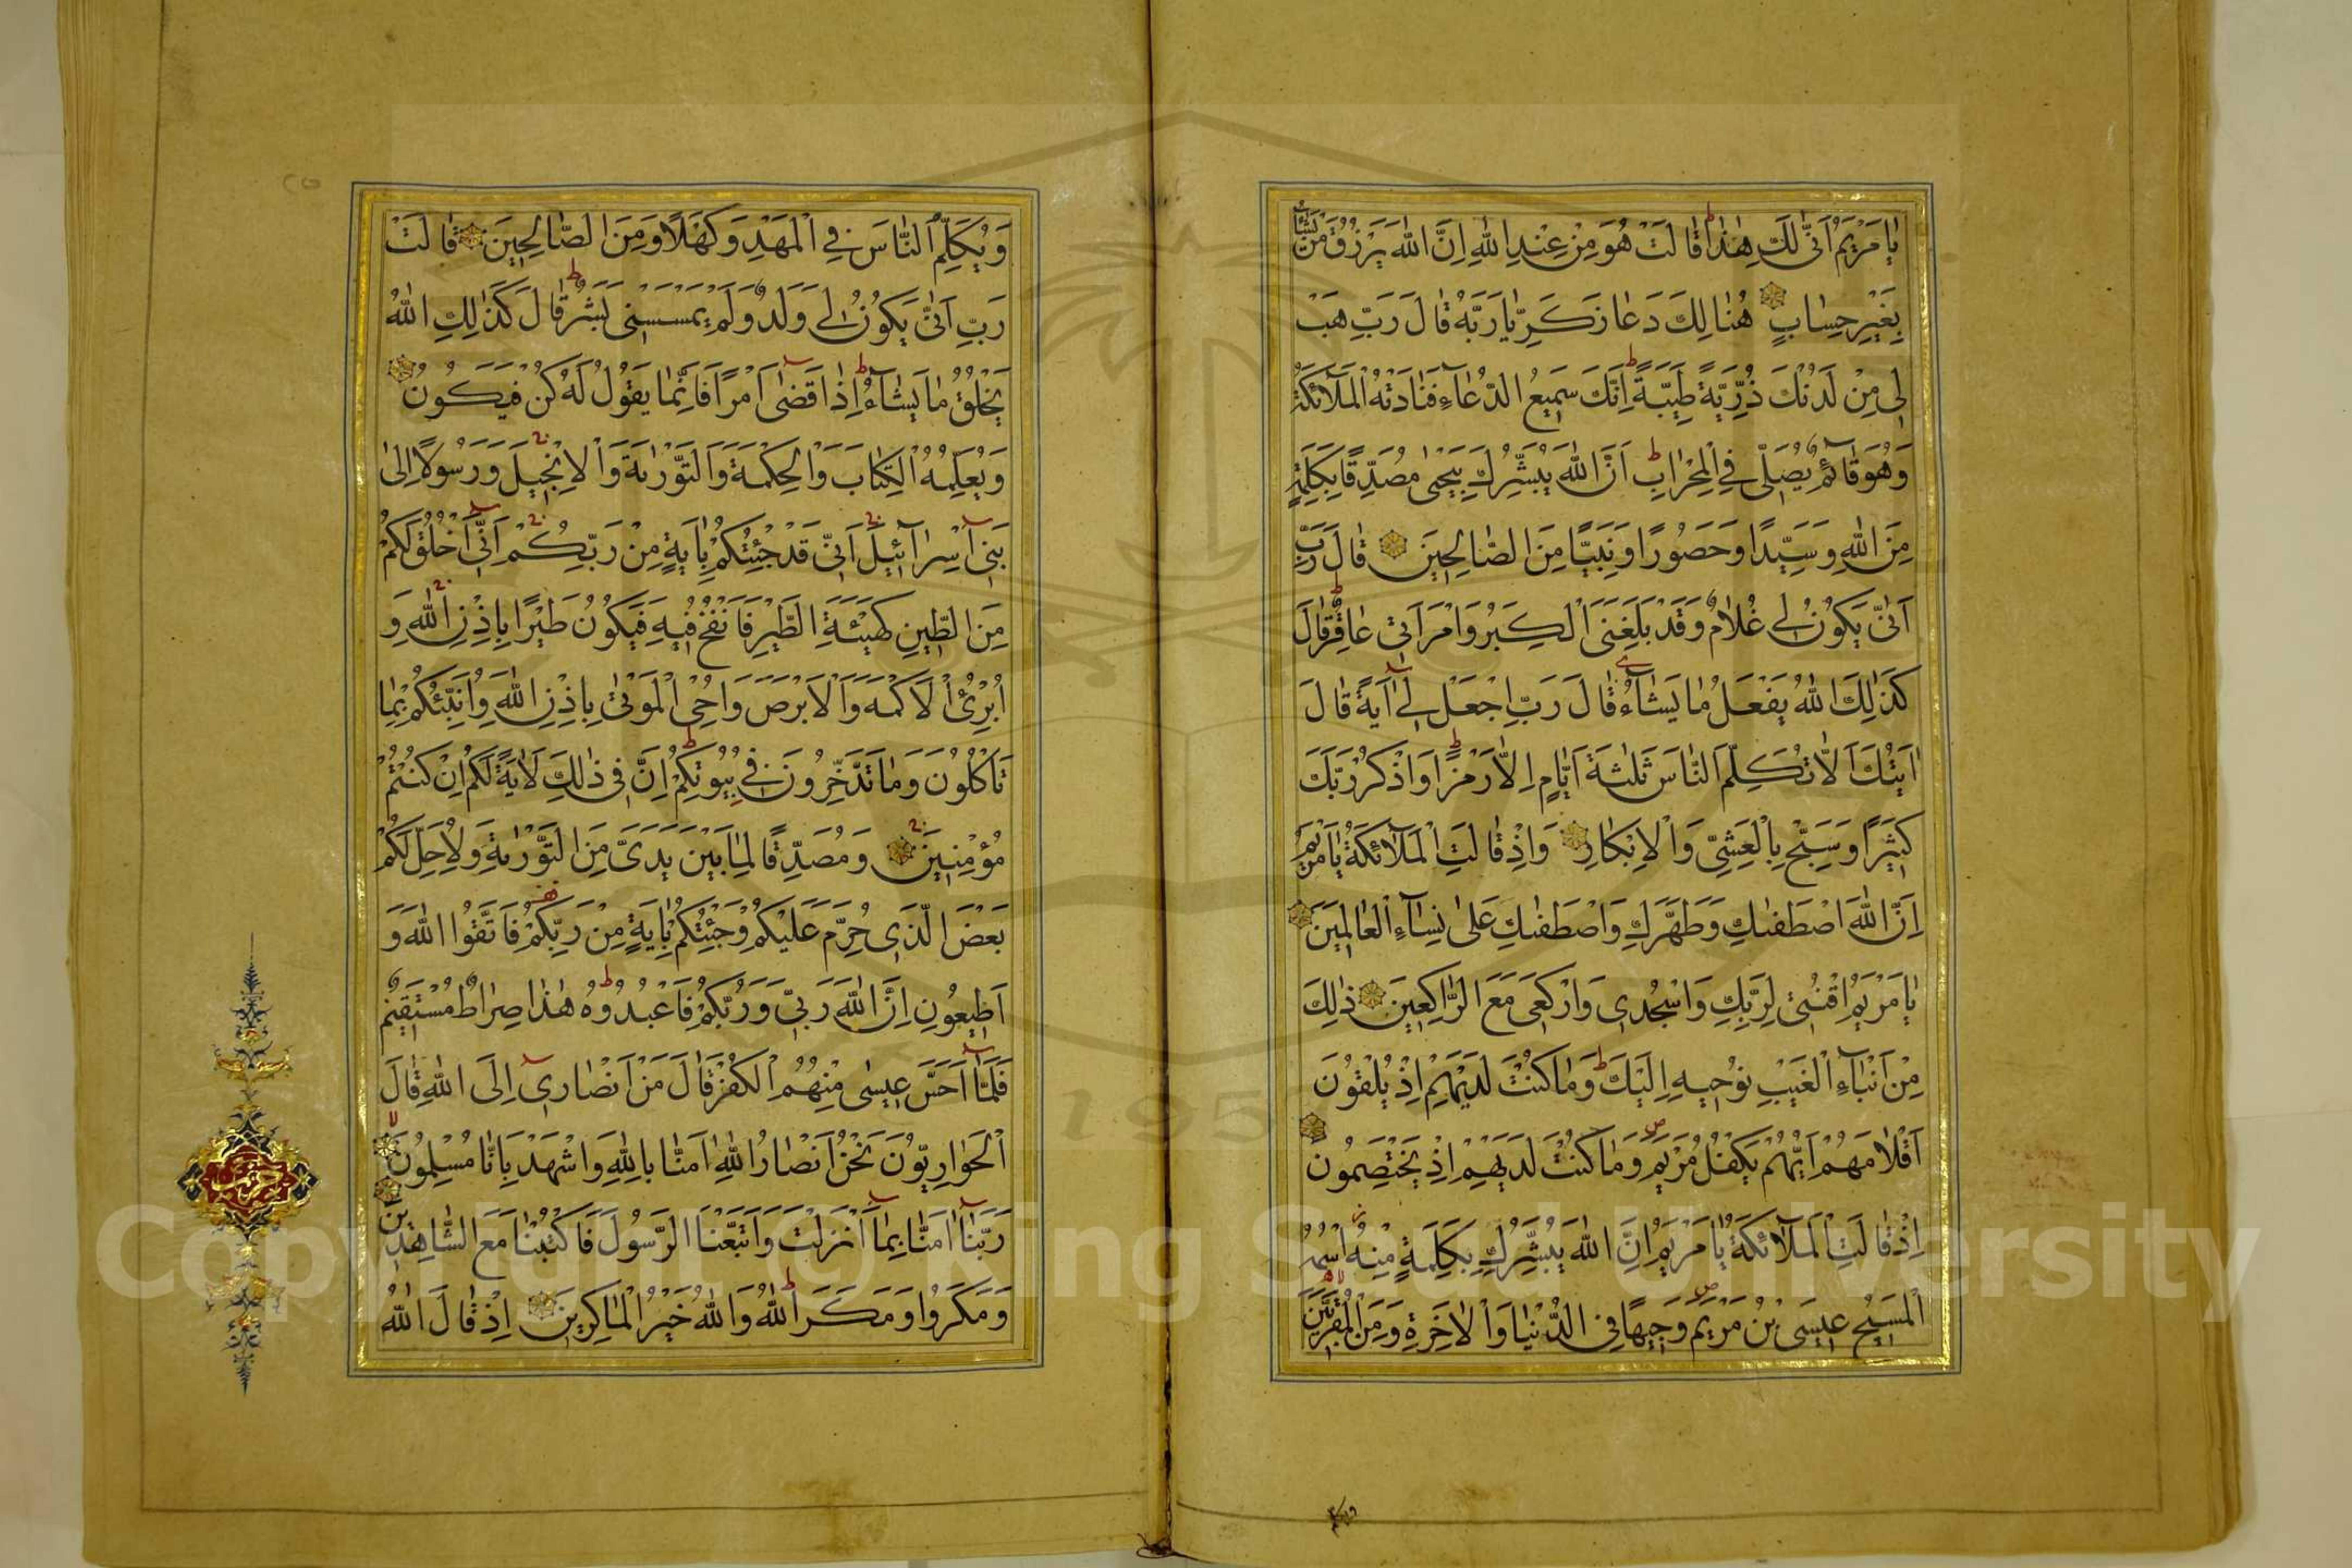 يَا مَرْيَمُ اَنّٰى لَكِ هٰذَا قَالَتْ هُوَ مِنْ عِنْدِ اللّٰهِ اِنَّ اللّٰهَ يَرْزُقُ مَنْ يَشَٓاءُ
بِغَيْرِ حِسَابٍ هُنَالِكَ دَعَا زَكَرِيَّا رَبَّهُ قَالَ رَبِّ هَبْ
لِى مِنْ لَدُنْكَ ذُرِّيَّةً طَيِّبَةً اِنَّكَ سَمِيعُ الدُّعَٓاءِ فَنَادَتْهُ الْمَلٰٓئِكَةُ
وَهُوَ قَٓائِمٌ يُصَلِّى فِى الْمِحْرَابِ اَنَّ اللّٰهَ يُبَشِّرُكَ بِيَحْيٰى مُصَدِّقًا بِكَلِمَةٍ
مِنَ اللّٰهِ وَسَيِّدًا وَحَصُورًا وَنَبِيًّا مِنَ الصَّالِحِينَ قَالَ رَبِّ
اَنّٰى يَكُونُ لِى غُلَامٌ وَقَدْ بَلَغَنِىَ الْكِبَرُ وَامْرَاَتِى عَاقِرٌ قَالَ
كَذٰلِكَ اللّٰهُ يَفْعَلُ مَا يَشَٓاءُ قَالَ رَبِّ اجْعَلْ لِى اٰيَةً قَالَ
اٰيَتُكَ اَلَّا تُكَلِّمَ النَّاسَ ثَلٰثَةَ اَيَّامٍ اِلَّا رَمْزًا وَاذْكُرْ رَبَّكَ
كَثِيرًا وَسَبِّحْ بِالْعَشِىِّ وَالْاِبْكَارِ وَاِذْ قَالَتِ الْمَلٰٓئِكَةُ يَا مَرْيَمُ
اِنَّ اللّٰهَ اصْطَفٰيكِ وَطَهَّرَكِ وَاصْطَفٰيكِ عَلٰى نِسَٓاءِ الْعَالَمِينَ
يَا مَرْيَمُ اقْنُتِى لِرَبِّكِ وَاسْجُدِى وَارْكَعِى مَعَ الرَّاكِعِينَ ذٰلِكَ
مِنْ اَنْبَٓاءِ الْغَيْبِ نُوحِيهِ اِلَيْكَ وَمَا كُنْتَ لَدَيْهِمْ اِذْ يُلْقُونَ
اَقْلَامَهُمْ اَيُّهُمْ يَكْفُلُ مَرْيَمَ وَمَا كُنْتَ لَدَيْهِمْ اِذْ يَخْتَصِمُونَ
اِذْ قَالَتِ الْمَلٰٓئِكَةُ يَا مَرْيَمُ اِنَّ اللّٰهَ يُبَشِّرُكِ بِكَلِمَةٍ مِنْهُ اسْمُهُ
الْمَسِيحُ عِيسَى بْنُ مَرْيَمَ وَجِيهًا فِى الدُّنْيَا وَالْاٰخِرَةِ وَمِنَ الْمُقَرَّبِينَ
وَيُكَلِّمُ
وَيُكَلِّمُ النَّاسَ فِى الْمَهْدِ وَكَهْلًا وَمِنَ الصَّالِحِينَ قَالَتْ
رَبِّ اَنّٰى يَكُونُ لِى وَلَدٌ وَلَمْ يَمْسَسْنِى بَشَرٌ قَالَ كَذٰلِكِ اللّٰهُ
يَخْلُقُ مَا يَشَٓاءُ اِذَا قَضٰى اَمْرًا فَاِنَّمَا يَقُولُ لَهُ كُنْ فَيَكُونُ
وَيُعَلِّمُهُ الْكِتَابَ وَالْحِكْمَةَ وَالتَّوْرٰيةَ وَالْاِنْجِيلَ وَرَسُولًا اِلٰى
بَنِى اِسْرَٓائِيلَ اَنِّى قَدْ جِئْتُكُمْ بِاٰيَةٍ مِنْ رَبِّكُمْ اَنِّى اَخْلُقُ لَكُمْ
مِنَ الطِّينِ كَهَيْـَٔةِ الطَّيْرِ فَاَنْفُخُ فِيهِ فَيَكُونُ طَيْرًا بِاِذْنِ اللّٰهِ وَ
اُبْرِئُ الْاَكْمَهَ وَالْاَبْرَصَ وَاُحْىِ الْمَوْتٰى بِاِذْنِ اللّٰهِ وَاُنَبِّئُكُمْ بِمَا
تَاْكُلُونَ وَمَا تَدَّخِرُونَ فِى بُيُوتِكُمْ اِنَّ فِى ذٰلِكَ لَاٰيَةً لَكُمْ اِنْ كُنْتُمْ
مُؤْمِنِينَ وَمُصَدِّقًا لِمَا بَيْنَ يَدَىَّ مِنَ التَّوْرٰيةِ وَلِاُحِلَّ لَكُمْ
بَعْضَ الَّذِى حُرِّمَ عَلَيْكُمْ وَجِئْتُكُمْ بِاٰيَةٍ مِنْ رَبِّكُمْ فَاتَّقُوا اللّٰهَ وَ
اَطِيعُونِ اِنَّ اللّٰهَ رَبِّى وَرَبُّكُمْ فَاعْبُدُوهُ هٰذَا صِرَاطٌ مُسْتَقِيمٌ
فَلَمَّٓا اَحَسَّ عِيسٰى مِنْهُمُ الْكُفْرَ قَالَ مَنْ اَنْصَارِى اِلَى اللّٰهِ قَالَ
الْحَوَارِيُّونَ نَحْنُ اَنْصَارُ اللّٰهِ اٰمَنَّا بِاللّٰهِ وَاشْهَدْ بِاَنَّا مُسْلِمُونَ
رَبَّنَٓا اٰمَنَّا بِمَٓا اَنْزَلْتَ وَاتَّبَعْنَا الرَّسُولَ فَاكْتُبْنَا مَعَ الشَّاهِدِينَ
وَمَكَرُوا وَمَكَرَ اللّٰهُ وَاللّٰهُ خَيْرُ الْمَاكِرِينَ اِذْ قَالَ اللّٰهُ
Copyright © King Saud University
195